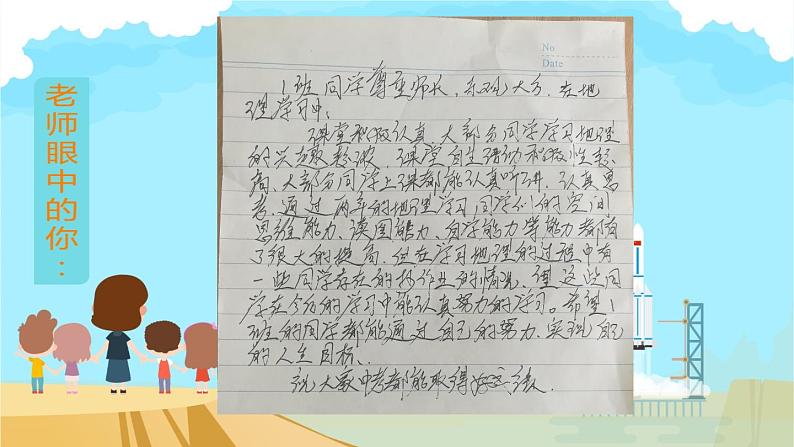 老师眼中的你：
No
Date
1班同学尊重师长，乐观大方，在地
理学习中，
课堂积极认真，大部分同学学习地理
的兴趣较浓，课堂自主活动积极性较
高、大部分同学上课都能认真听讲，认真思
考，通过两年的地理学习，同学们的空间
思维能力、读图能力、自学能力等能力都有
了很大的提高，但在学习地理的过程中有
一些同学存在的抄作业的情况，望这些同
学在今后的学习中能认真努力的学习。希望1
班的同学都能通过自己的努力、实现自己
的人生目标、
祝大家中考都能取得好成绩.